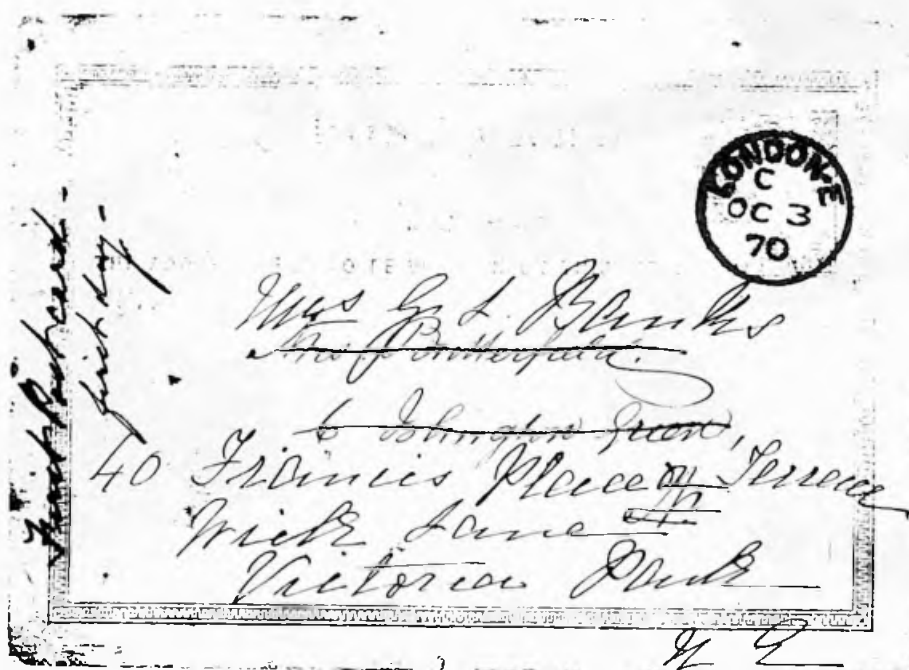 First Postcard -
first day -
LONDON-E
C
OC 3
70
Mrs G. L. Banks
Mrs
6 Islington Green,
40 Francis Place or Terrace
Wick Lane
Victoria Park
N E